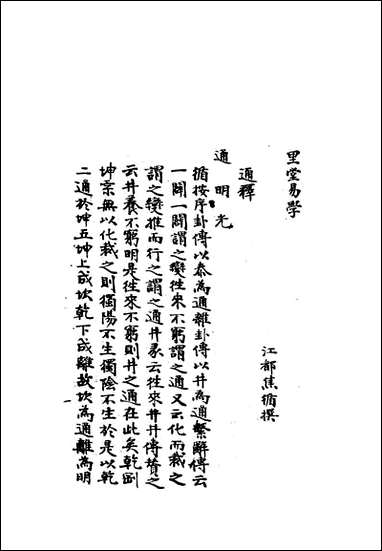 里堂易學
江都焦循撰
通釋
通　明　光
循按序卦傳以泰為通雜卦傳以井為通繫辭傳云
一闔一闢謂之變徃來不窮謂之通又云化而裁之
謂之變推而行之謂之通井彖云徃來井井傳贊之
云井養不窮明是徃來不窮則井之通在此矣乾
坤宗無以化裁之則獨陽不生獨陰不生於是以乾
二通於坤五坤上成坎乾下成離故坎為通離為明